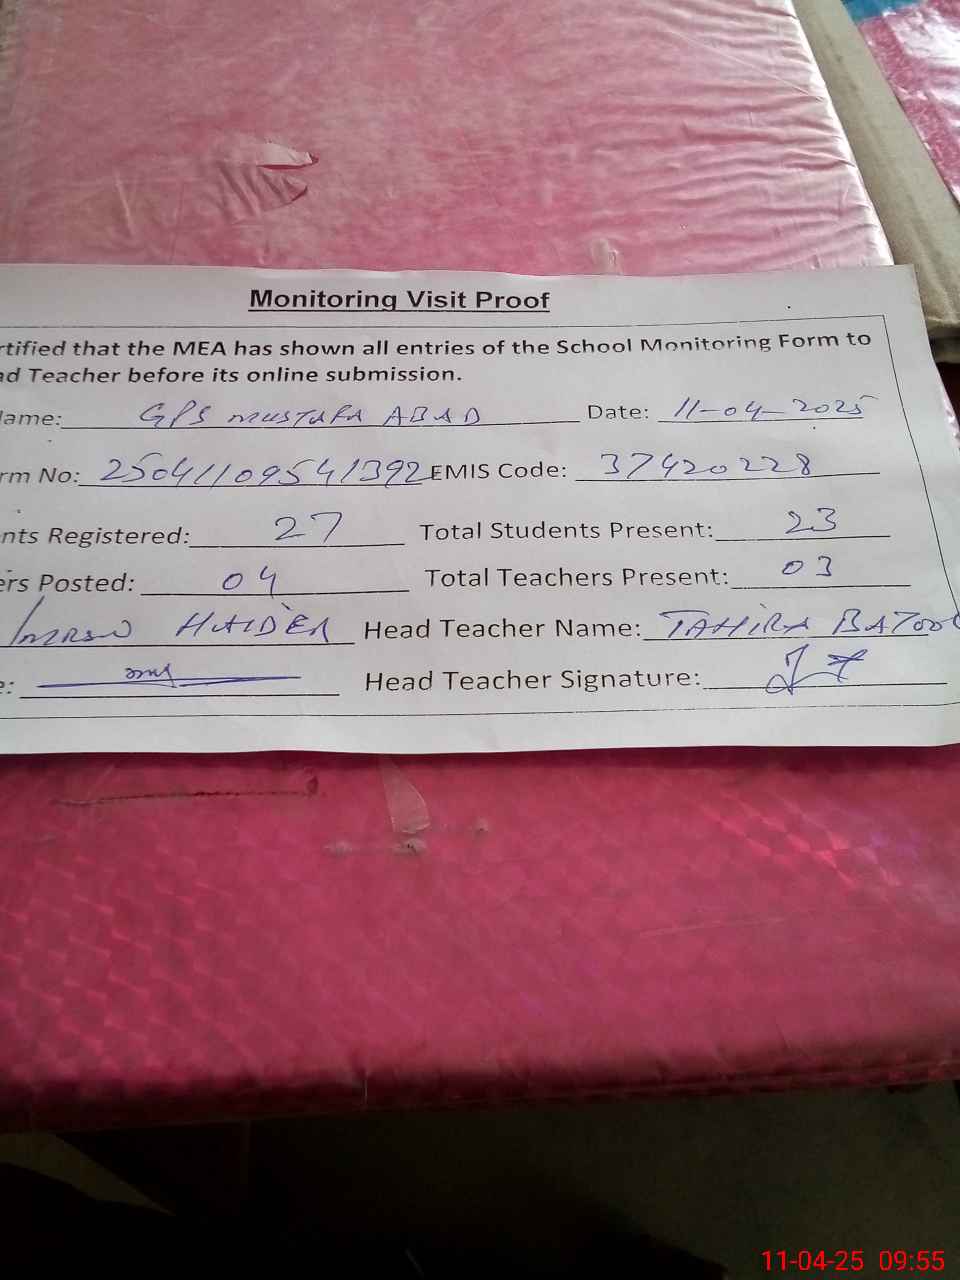 Monitoring Visit Proof
rtified that the MEA has shown all entries of the School Monitoring Form to
ad Teacher before its online submission.
lame: GPS MUSTAFA ABAD Date: 11-04-2025
rm No: 25041109541392 EMIS Code: 37420228
nts Registered: 27 Total Students Present: 23
ers Posted: 04 Total Teachers Present: 03
IMRAN HAIDER Head Teacher Name: TAHIRA BATOOL
e: Head Teacher Signature:
11-04-25 09:55